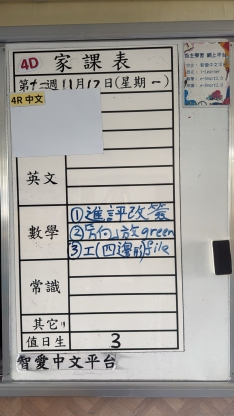 4D 家課表
第十一週 11月17日(星期一)
4R 中文
英文
數學
①進評改簽
放green
③工(四邊形)file
常識
其它
值日生 3
智愛中文平台
自主學習 網上平台